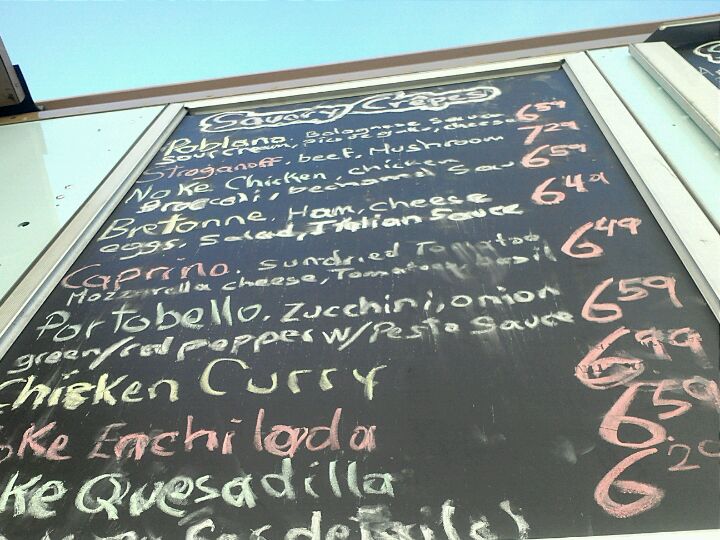 Savory Crepes
Poblano. Bolognese sauce 6.59
sour cream, pico de gallo, cheese
Stroganoff, beef, Mushroom 7.29
Noke Chicken, chicken 6.59
Broccoli, bechamel Sau
Bretonne. Ham, cheese 6.49
eggs, salad, Italian Sauce
Caprino. sundried Tomatoe 6.49
Mozzarella cheese, Tomatoe, basil
Portobello, Zucchini, onion 6.59
green/red pepper w/Pesto Sauce
Chicken Curry 6.99
oke Enchilada 6.59
ke Quesadilla 6.29